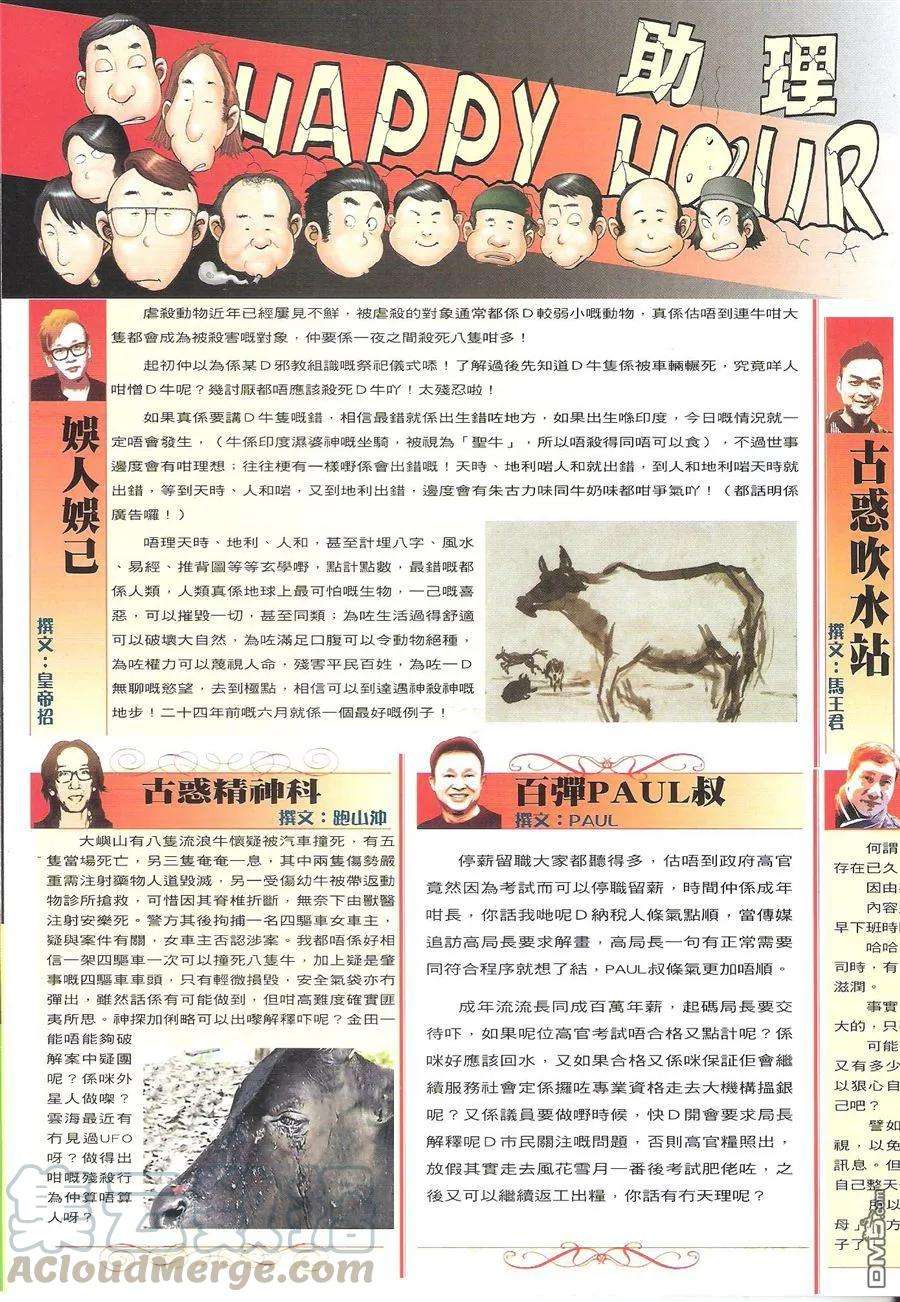 助理
HAPPY HOUR
娛人娛己
撰文：皇帝招
虐殺動物近年已經屢見不鮮，被虐殺的對象通常都係D較弱小嘅動物，真係估唔到連牛咁大
隻都會成為被殺害嘅對象，仲要係一夜之間殺死八隻咁多！
起初仲以為係某D邪教組識嘅祭祀儀式㗎！了解過後先知道D牛隻係被車輛輾死，究竟咩人
咁憎D牛呢？幾討厭都唔應該殺死D牛吖！太殘忍啦！
如果真係要講D牛隻嘅錯，相信最錯就係出生錯咗地方，如果出生喺印度，今日嘅情況就一
定唔會發生，（牛係印度濕婆神嘅坐騎，被視為「聖牛」，所以唔殺得同唔可以食），不過世事
邊度會有咁理想；往往梗有一樣嘢係會出錯嘅！天時、地利啱人和就出錯，到人和地利啱天時就
出錯，等到天時、人和啱，又到地利出錯，邊度會有朱古力味同牛奶味都咁爭氣吖！（都話明係
廣告囉！）
唔理天時、地利、人和，甚至計埋八字、風水
、易經、推背圖等等玄學嘢，點計點數，最錯嘅都
係人類，人類真係地球上最可怕嘅生物，一己嘅喜
惡，可以摧毀一切，甚至同類；為咗生活過得舒適
可以破壞大自然，為咗滿足口腹可以令動物絕種，
為咗權力可以蔑視人命，殘害平民百姓，為咗一D
無聊嘅慾望，去到極點，相信可以到達遇神殺神嘅
地步！二十四年前嘅六月就係一個最好嘅例子！
古惑吹水站
撰文：馬王君
古惑精神科
撰文：跑山沖
大嶼山有八隻流浪牛懷疑被汽車撞死，有五
隻當場死亡，另三隻奄奄一息，其中兩隻傷勢嚴
重需注射藥物人道毀滅，另一受傷幼牛被帶返動
物診所搶救，可惜因其脊椎折斷，無奈下由獸醫
注射安樂死。警方其後拘捕一名四驅車女車主，
疑與案件有關，女車主否認涉案。我都唔係好相
信一架四驅車一次可以撞死八隻牛，加上疑是肇
事嘅四驅車車頭，只有輕微損毀，安全氣袋亦冇
彈出，雖然話係有可能做到，但咁高難度確實匪
夷所思。神探加俐略可以出嚟解釋吓呢？金田一
能唔能夠破
解案中疑團
呢？係咪外
星人做㗎？
雲海最近有
冇見過UFO
呀？做得出
咁嘅殘殺行
為仲算唔算
人呀？
百彈PAUL叔
撰文：PAUL
停薪留職大家都聽得多，估唔到政府高官
竟然因為考試而可以停職留薪，時間仲係成年
咁長，你話我哋呢D納稅人條氣點順，當傳媒
追訪高局長要求解畫，高局長一句有正常需要
同符合程序就想了結，PAUL叔條氣更加唔順。
成年流流長同成百萬年薪，起碼局長要交
待吓，如果呢位高官考試唔合格又點計呢？係
咪好應該回水，又如果合格又係咪保証佢會繼
續服務社會定係攞咗專業資格走去大機構搵銀
呢？又係議員要做嘢時候，快D開會要求局長
解釋呢D市民關注嘅問題，否則高官糧照出，
放假其實走去風花雪月一番後考試肥佬咗，之
後又可以繼續返工出糧，你話有冇天理呢？
何謂
存在已久
因由
內容
早下班時
哈哈
司時，有
滋潤。
事實
大的，只
可能
又有多少
以狠心自
己吧？
譬如
視，以免
訊息。但
自己整天
所以
母」方
子了
AcloudMerge.com
DM5.com